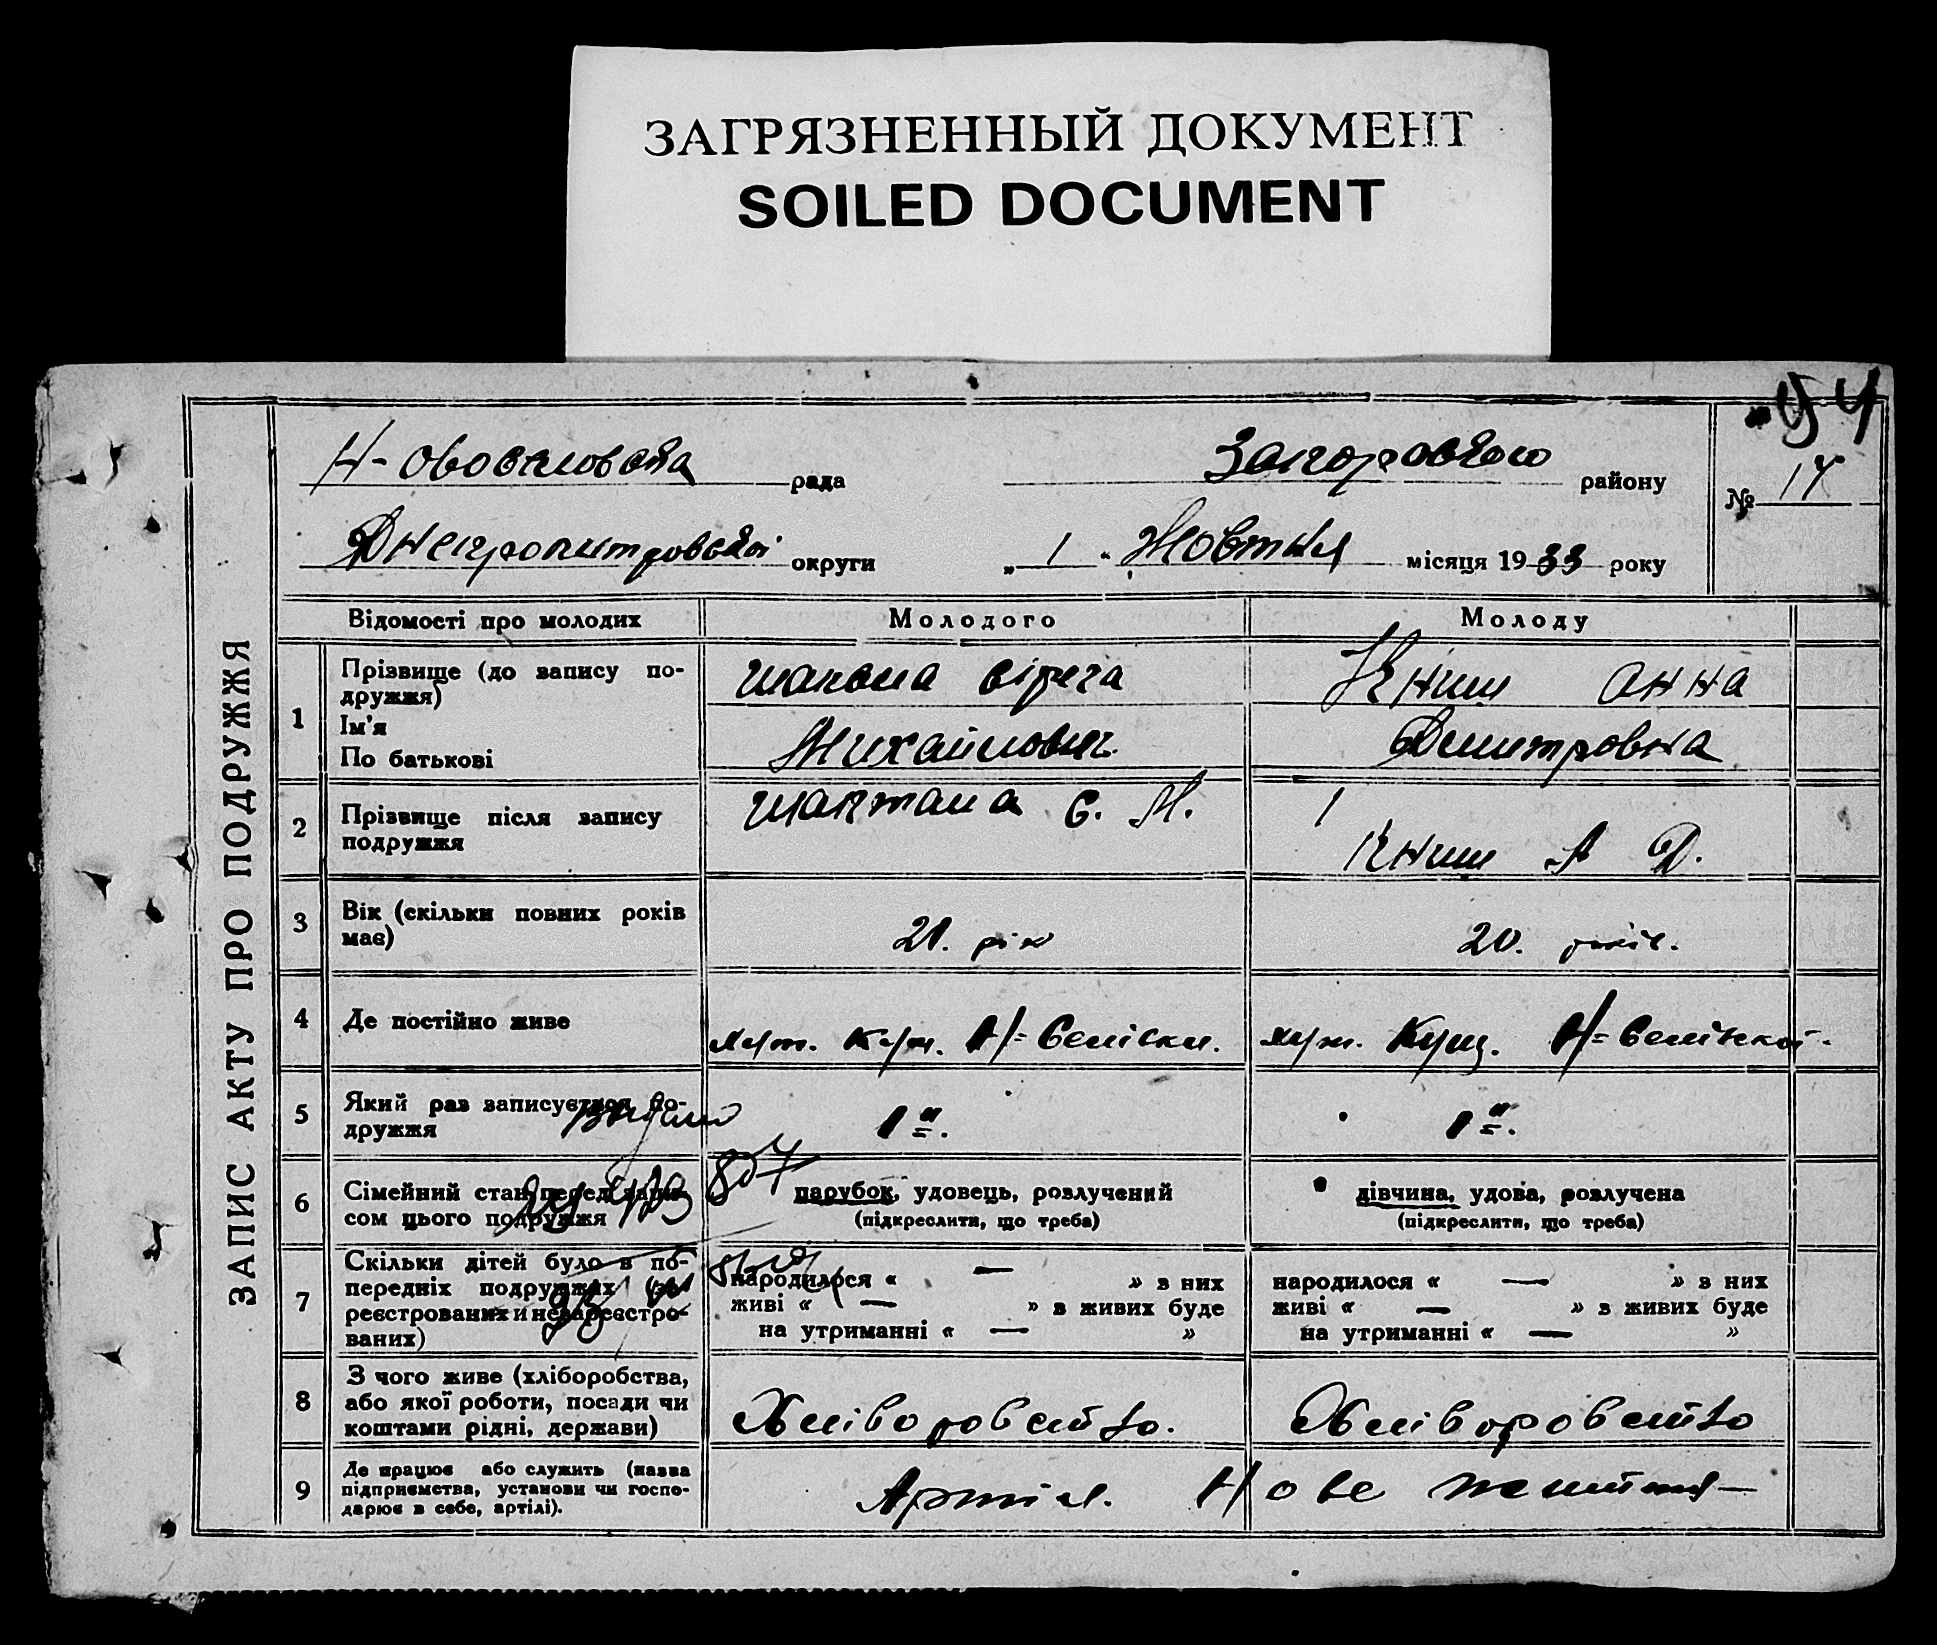 ЗАГРЯЗНЕННЫЙ ДОКУМЕНТ
SOILED DOCUMENT
рада
району
№ 14
округи „ 1 " Жовтня місяця 1933 року
ЗАПИС АКТУ ПРО ПОДРУЖЖЯ
Відомості про молодих Молодого Молоду
1 Прізвище (до запису по-
дружжя)
Ім'я
По батькові
Книш Анна
Михайлович Дмитровна
2 Прізвище після запису
подружжя
С. М.
Книш А Д.
3 Вік (скільки повних років
має)
21. рік 20. років.
4 Де постійно живе
хут. Н=Селінкої.
5 Який раз записується по-
дружжя
1й. 1й.
6 Сімейний стан перед запи-
сом цього подружжя
парубок, удовець, розлучений
(підкреслити, що треба)
дівчина, удова, розлучена
(підкреслити, що треба)
7 Скільки дітей було в по-
передніх подружжях (за-
реєстрованих и незареєстро-
ваних)
народилося « — » з них
живі « — » з живих буде
на утриманні « — »
народилося « — » з них
живі « — » з живих буде
на утриманні « — »
8 З чого живе (хліборобства,
або якої роботи, посади чи
коштами рідні, держави)
Хліборобство. Хліборобство
9 Де працює або служить (назва
підприємства, установи чи госпо-
дарює в себе, артілі).
Артіл. Нове життя—